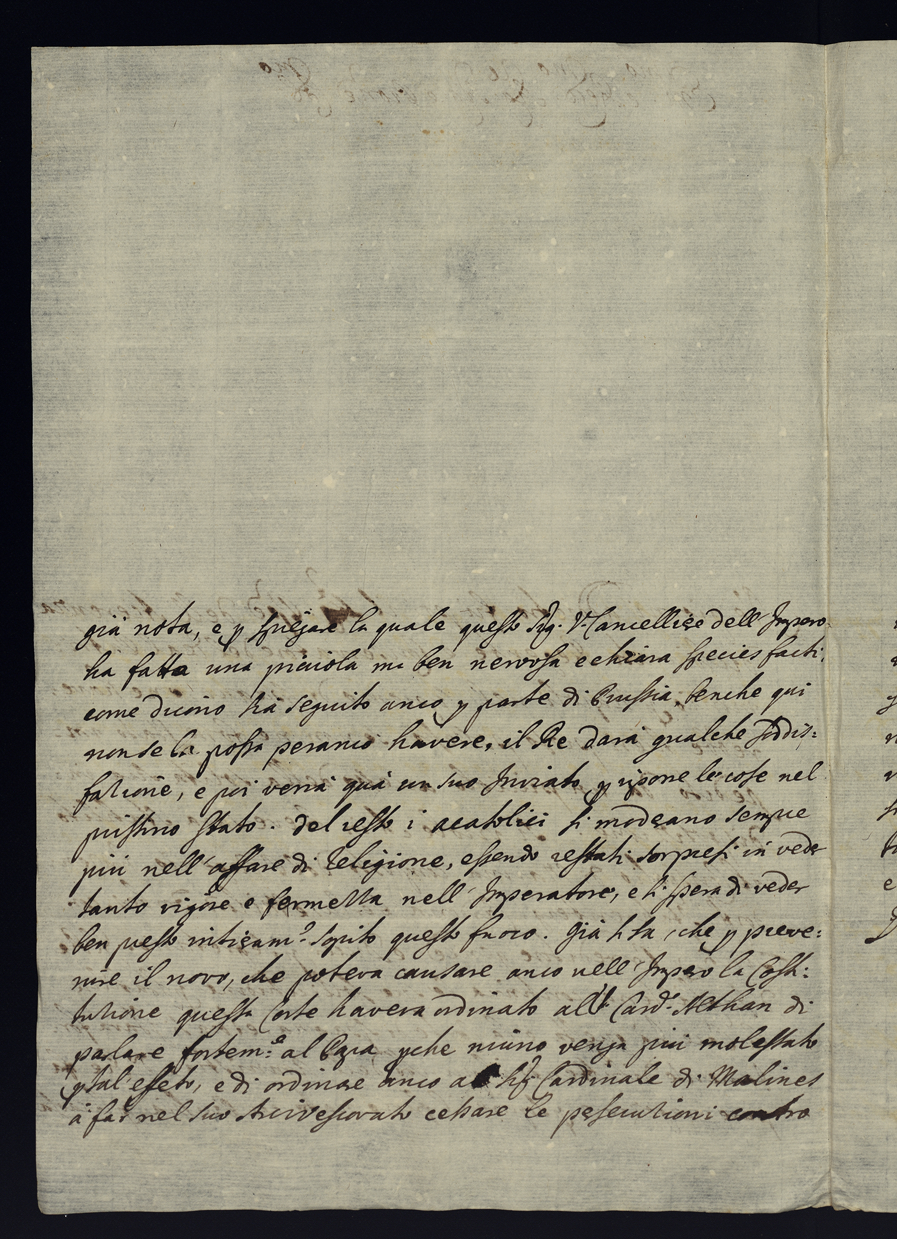 già nota, e p spiegare la quale questo Sig. V. Cancelliero dell Impero
ha fatta una piciola ma ben nervosa e chiara species facti,
come dicono hà seguito anco p parte di Prussia, benche qui
non se la possa peranco havere, il Re darà qualche soddis:
fatione, e poi verrà quà un suo Inviato p ripore le cose nel
pristino stato. del resto i acatolici si moderano sempre
più nell'affare di Religione, essendo restati sorpresi in veder
tanto vigore e fermetta nell'Imperatore, e si spera di veder
ben presto intieram.e sopito questo fuoco. Già si sa, che p preve:
nire il novo, che poteva causare anco nell'Impero la Costi:
tutione questa Corte haveva ordinato all Card. Althan di
parlare fortem.e al Papa pche niuno venga più molestato
p tal effeto, e di ordinare anco al Cardinale di Malines
à far nel suo Arcivescovato cessare le persecutioni contro